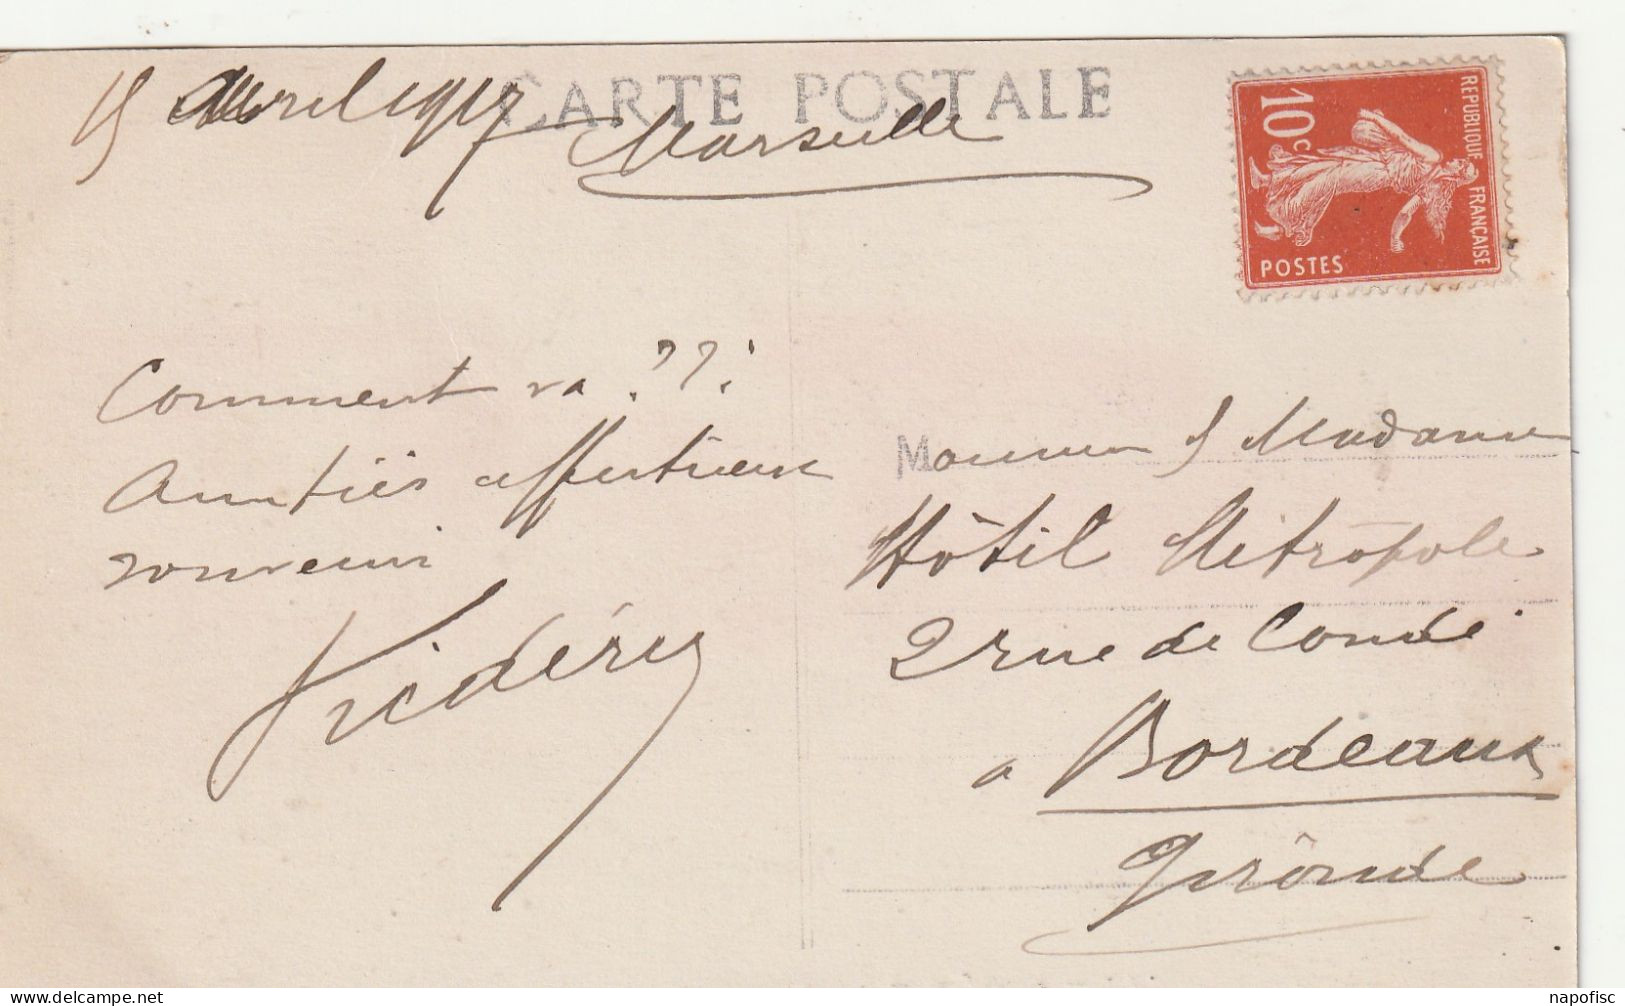 CARTE POSTALE
15 Avril 1917 Marseille
REPUBLIQUE FRANÇAISE
10c
POSTES
Comment va ???
Amitiés affectueux
souvenir
Frédéric
Monsieur & Madame
Hôtel Métropole
2 rue de Condé
a Bordeaux
Gironde
napofisc